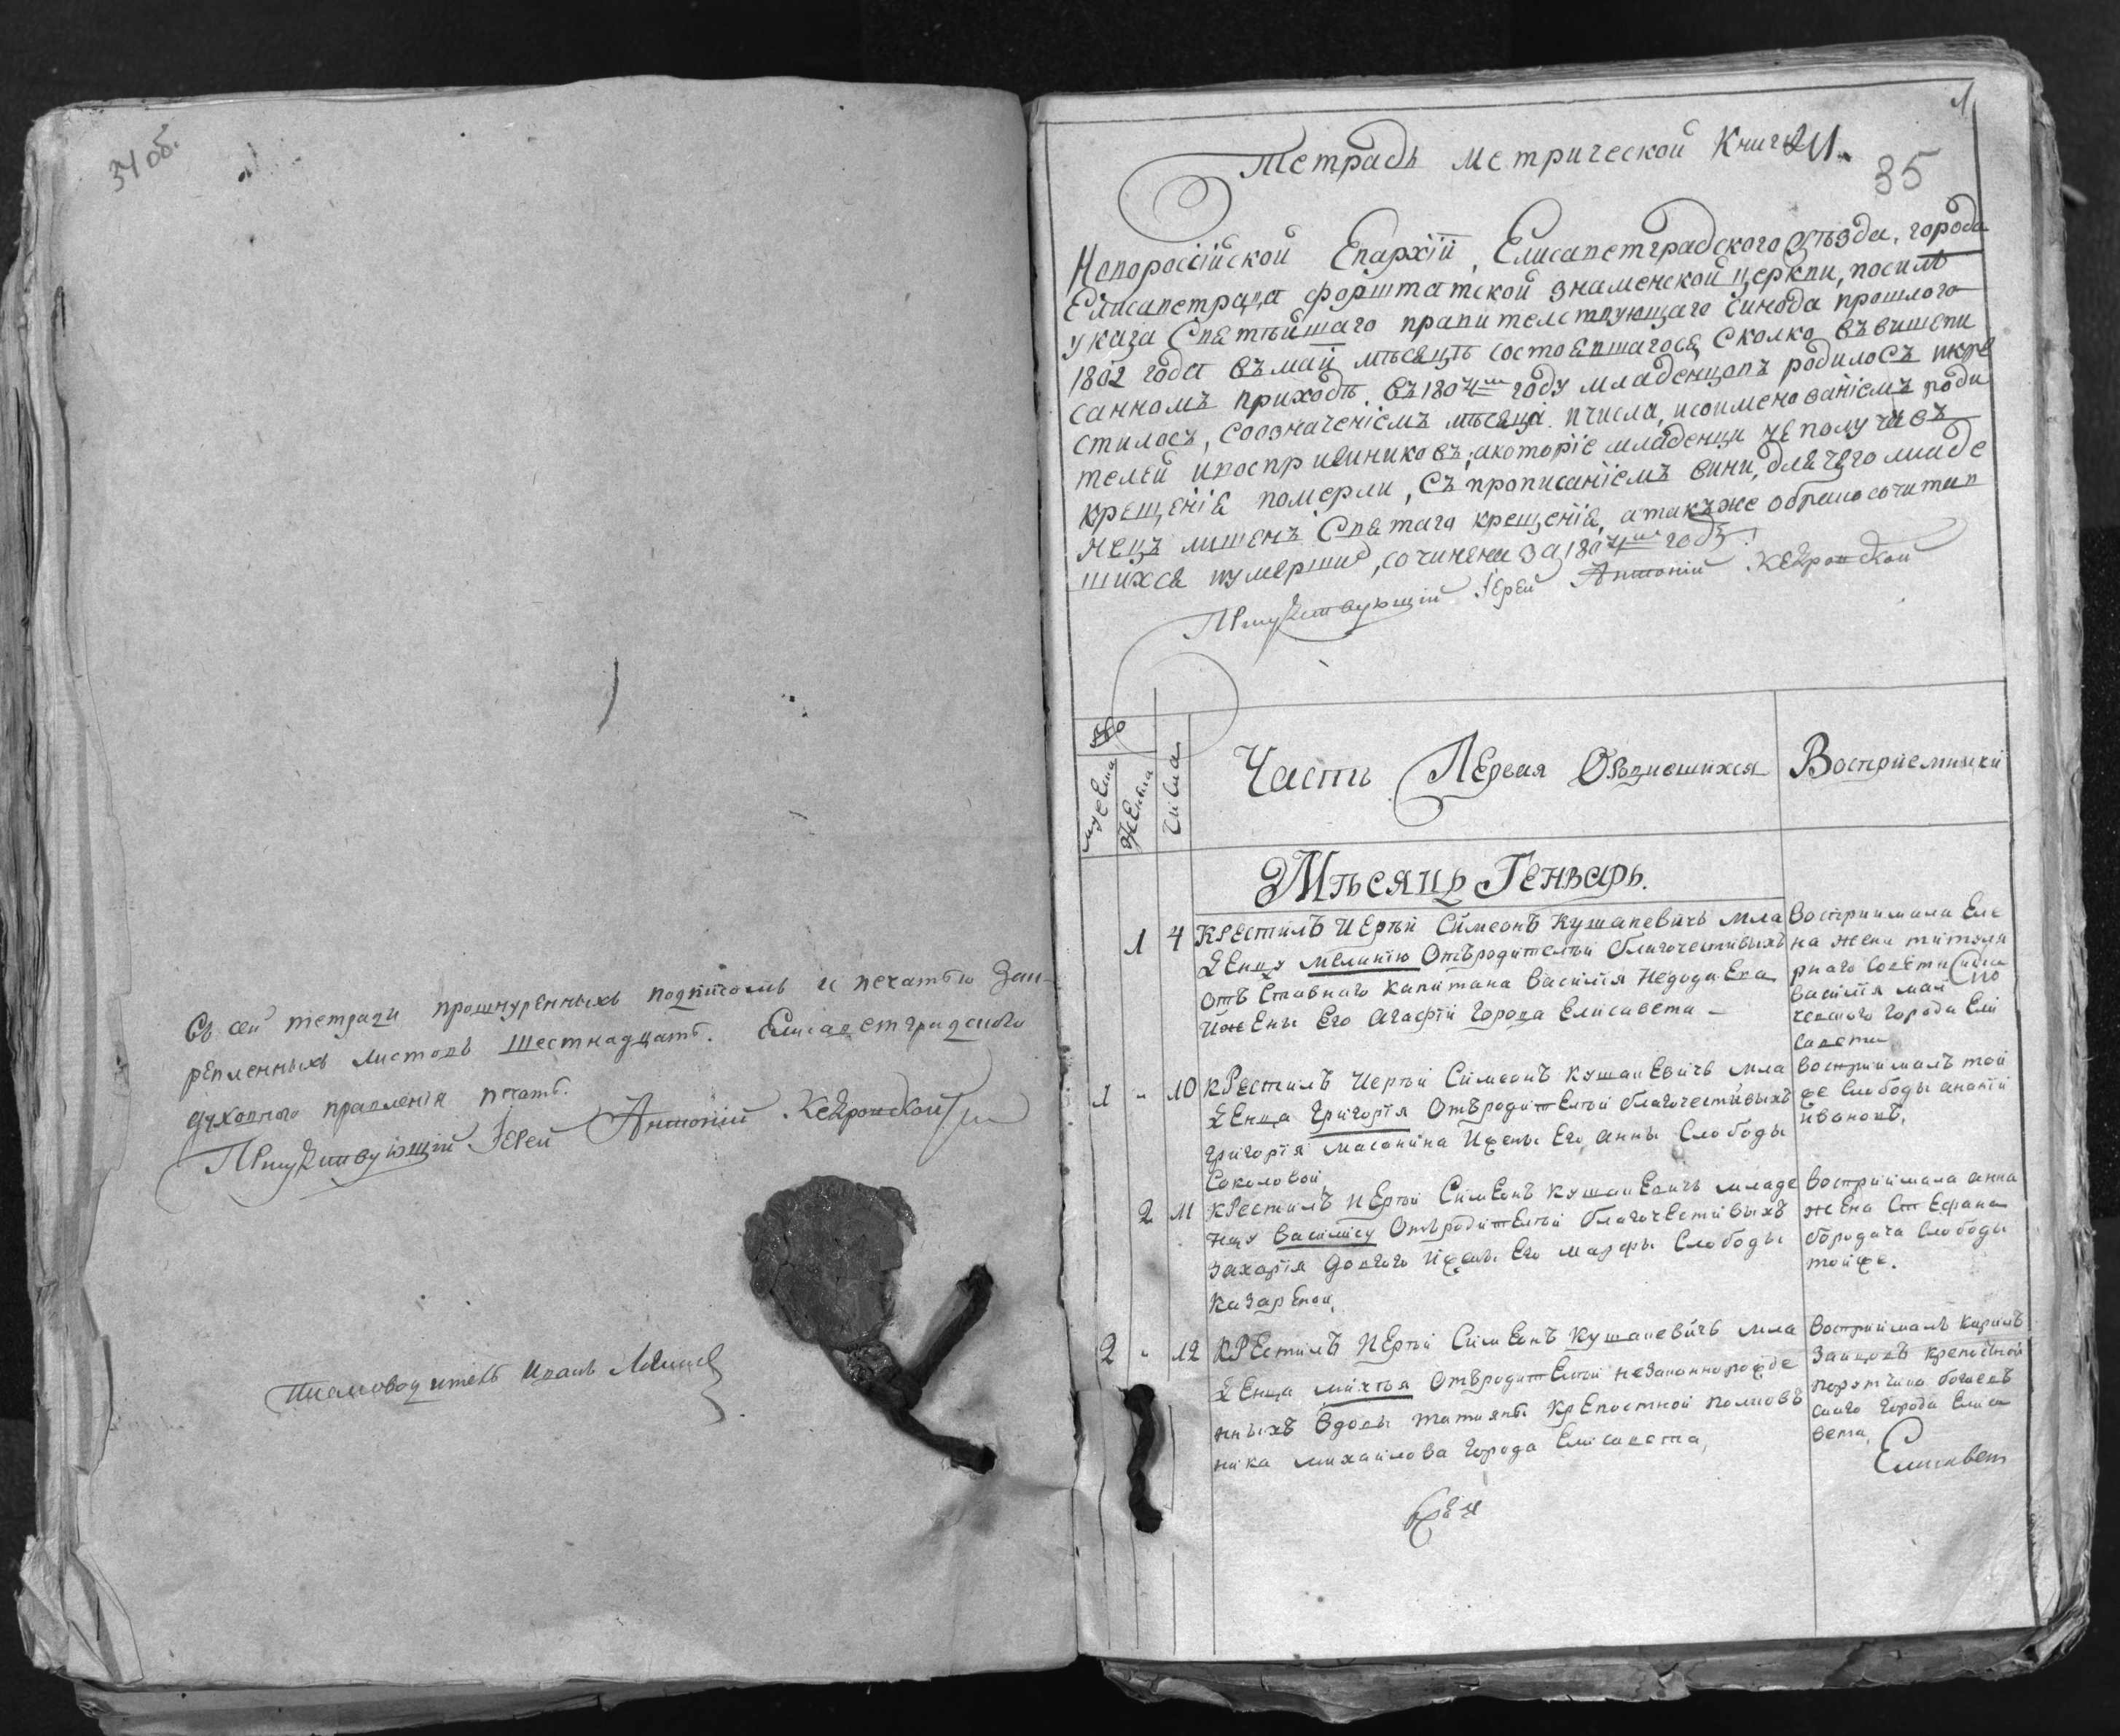 34 об.
Въ сей тетради прошнуренныхъ подписомъ и печатью Зак-
репленныхъ листовъ шестнадцать. Елисаветградского
духовного правления печать.
Присудствующій Іерей Антоній
Писмоводитель Иванъ
1
Тетрадь метрической Книги
35
Новороссійской Епархіи, Елисаветградского уѣзда, города
Елисаветрада форштатской знаменской церкви, посилѣ
указа Святѣйшаго правителствующаго Синода прошлого
1802 года въ май мѣсяцѣ состоявшагося, Сколко въ вишепи
санномъ приходѣ въ 1804м году младенцовъ родилось икре
стилось, соозначеніемъ мѣсяца ичисла, исоименованіемъ роди
телей ивоспрiемниковъ, акоторіе младенци неполучивъ
крещенія померли, съ прописаніемъ вини, для чего младе
нецъ лишенъ Святаго крещенія, атакъже обракосочитав
шихся иумерших, сочинена за 1804м годъ.
Присудствующій Іерей Антоній
№
мужеска
женска
числа
Часть Первая О родившихся
Восприемники
Мѣсяцъ Генварь.
1 4 Крестилъ Иерѣй Симеонъ Кушаневичь мла
денцу Меланію Отъ родителѣй благочестивыхъ
отъ Ставного капитана Василія Недодаева
ижены Его Агафіи города Елисавета
Восприимала Еле
на жена титуля
рного советника
василія мал
ческого города Ели
савета
1 „ 10 Крестилъ Иерѣй Симеонъ Кушаневичь мла
денца Григорія Отъ родителѣй благочестивыхъ
Григорія Масонина ижены Его Анны Слободы
Соколовой
восприималъ той
же Слободы ананій
ивановъ.
2 11 Крестилъ Иерѣй Симеонъ Кушаневичь младе
нцу Василису Отъ родителѣй благочестивыхъ
Захарія Довгого ижены Его Марфы Слободы
Казарвной
восприимала анна
жена Стефана
бородача Слободы
тойже.
2 „ 12 Крестилъ Иерѣй Симеонъ Кушаневичь мла
денца Михея Отъ родителѣй незаконнорожде
нныхъ вдовы татияны крепостной полков
ника михайлова города Елисавета
Восприималъ Кирилъ
Зайцовъ крепостной
порутчика
ского города Елиса
вета
Елисавет